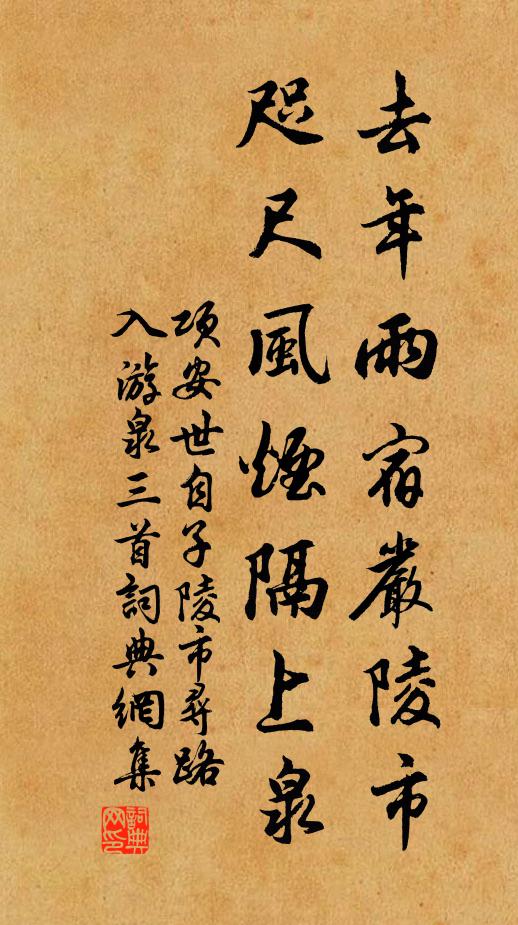 去年雨宿嚴陵市
咫尺風煙隔上泉
項安世自子陵市尋路
入游泉三首詞典網集
詞典网印